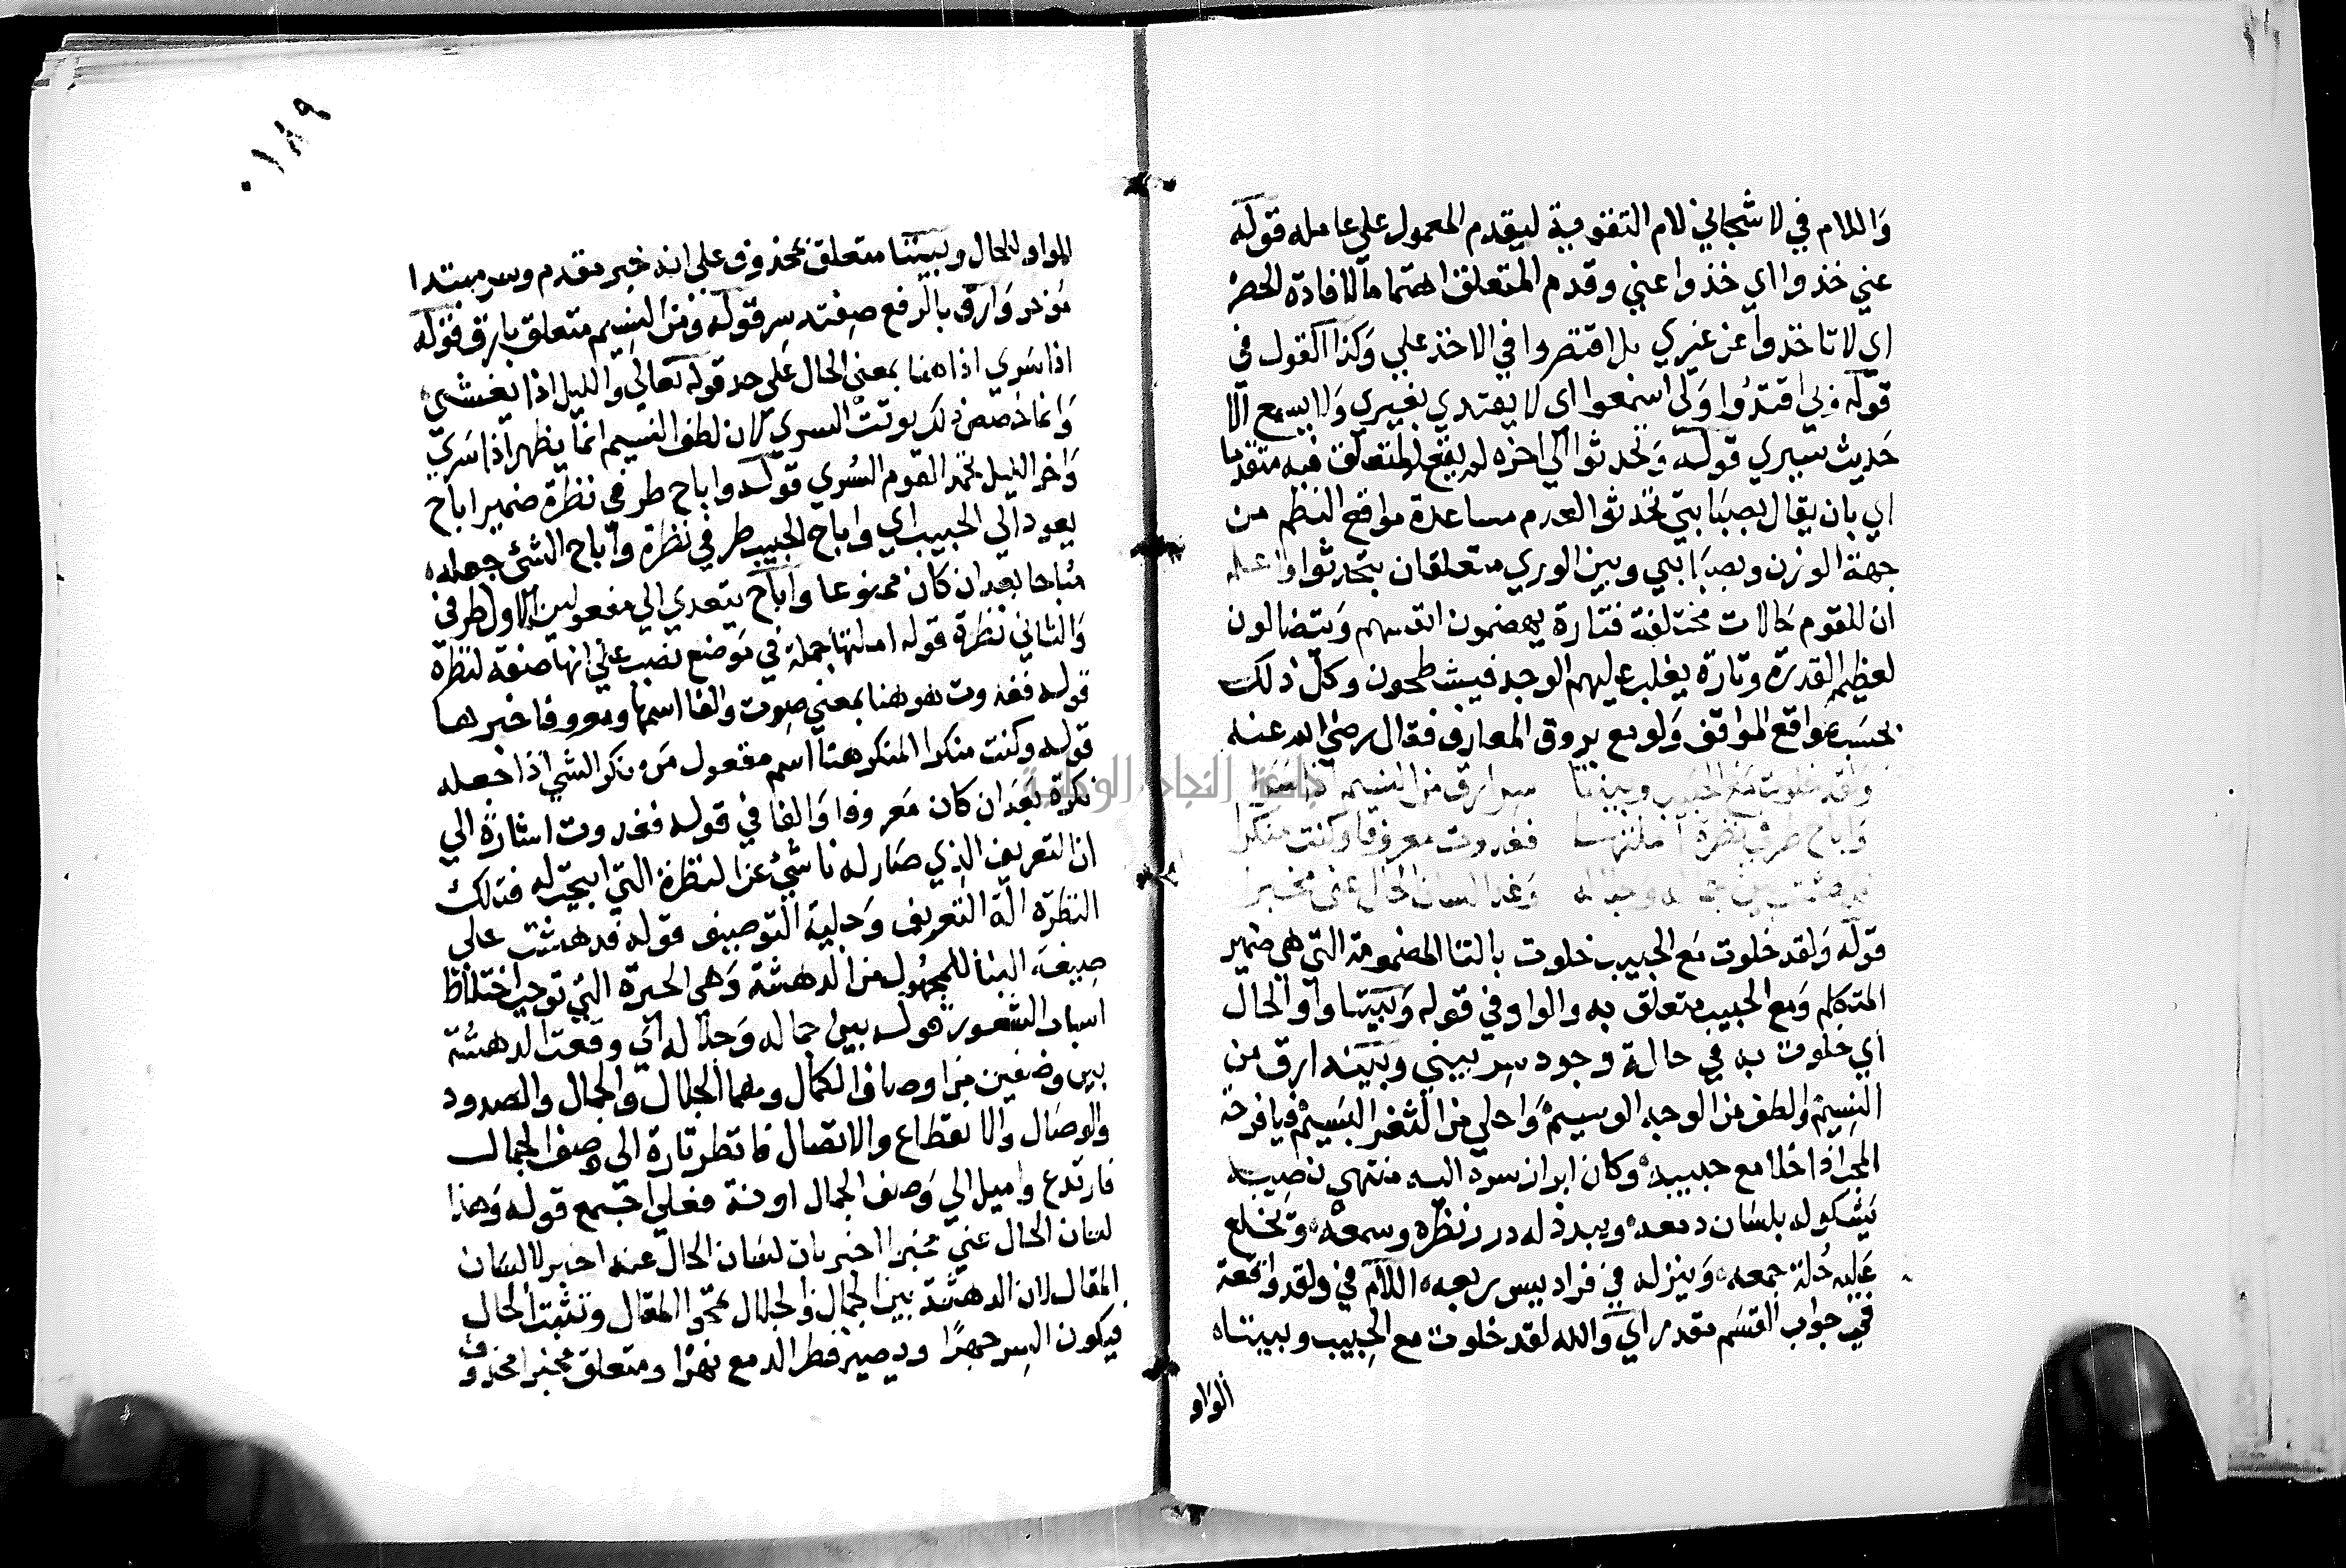 واللام في لاشجاني لام التقوية ليقدم المعمول علي عامله قوله
عني خذوا اي خذوا عني وقدم المتعلق اهتماما لافادة الحصر
اي لا تاخذوا عن غيري بل اقتصروا في الاخذ علي وكذا القول في
قوله وبي اقتدوا ولي اسمعوا اي لا يقتدي بغيري ولا يسمع الا
حديث سيري قوله وتحدثوا الي اخره لم يقع المتعلق فيه متقدما
اي بان يقال بصبابتي تحدثوا لعدم مساعدة مواقع النظم من
جهة الوزن وبصبابتي وبين الوري متعلقان بتحدثوا واعلم
ان للقوم حالات مختلفة فتارة يهضمون انفسهم ويتضالون
لعظيم القدرة وتارة يغلب عليهم الوجد فيشطحون وكل ذلك
بحسب مواقع المواقف ولوامع بروق المعارف فقال رضي الله عنه
ولقد خلوت مع الحبيب وبيننا سر ارق من النسيم اذا سرا
واباح طرفي نظرة املتها فغدوت معروفا وكنت منكرا
فدهشت بين جماله وجلاله وغدا لسان الحال عني مخبرا
قوله ولقد خلوت مع الحبيب خلوت بالتا المضمومة التي هي ضمير
المتكلم ومع الحبيب متعلق به والواو في قوله وبيننا واو الحال
اي خلوت به في حالة وجود سر بيني وبينه ارق من
النسيم والطف من الوجه الوسيم واحلي من الثغر البسيم فيا فرحة
المحب اذا خلا مع حبيبه وكان ابراز سره اليه منتهي نصيبه
يشكو له بلسان دمعه ويبذل له درر نظره وسمعه ويخلع
عليه حلة جمعه وينزله في فراديس ربعه اللام في ولقد واقعة
في جواب القسم مقدر اي والله لقد خلوت مع الحبيب وبيننا
الواو
٠١٨٩
الواو للحال وبيننا متعلق بمحذوف علي انه خبر مقدم وسر مبتدا
موخر وارق بالرفع صفته سر قوله ومن النسيم متعلق بارق فقوله
اذا سري اذا هنا بمعني الحال علي حد قوله تعالي والليل اذا يغشي
وانما خصص ذلك بوقت السري لان لطف النسيم انما يظهر اذا سري
واخر الليل يحمد القوم السري قوله واباح طرفي نظرة ضمير اباح
يعود الي الحبيب اي واباح الحبيب طرفي نظرة واباح الشئ جعله
مباحا بعد ان كان ممنوعا واباح يتعدي الي مفعولين الاول طرفي
والثاني نظرة قوله املتها جملة في موضع نصب علي انها صفة لنظرة
قوله فغدوت هو هنا بمعني صرت والفا اسمها ومعروفا خبرها
قوله وكنت منكرا المنكر هنا اسم مفعول من نكر الشي اذا جعله
نكرة بعد ان كان معروفا والفا في قوله فغدوت اشارة الي
ان التعريف الذي صار له ناشئ عن النظرة التي ابيحت له فتلك
النظرة الة التعريف وحلية التوصيف قوله فدهشت علي
صيغة البنا للمجهول من الدهشة وهي الحيرة التي توجب اختلاط
اسباب الشعور قوله بين جماله وجلاله اي وقعت الدهشة
بين وصفين من اوصاف الكمال وهما الجلال والجمال والصدود
والوصال والانقطاع والاتصال فانظر تارة الي وصف الجمال
فارتدع واميل الي وصف الجمال اونة فعلي اجتمع قوله وهذا
لسان الحال عني مخبرا اخبر بان لسان الحال عنه اخبر لا لسان
المقال لان الدهشة بين الجمال والجلال تمحو المقال وتثبت الحال
فيكون السر جهرا ويصير قطر الدمع نهرا ومتعلق مخبرا محذوف